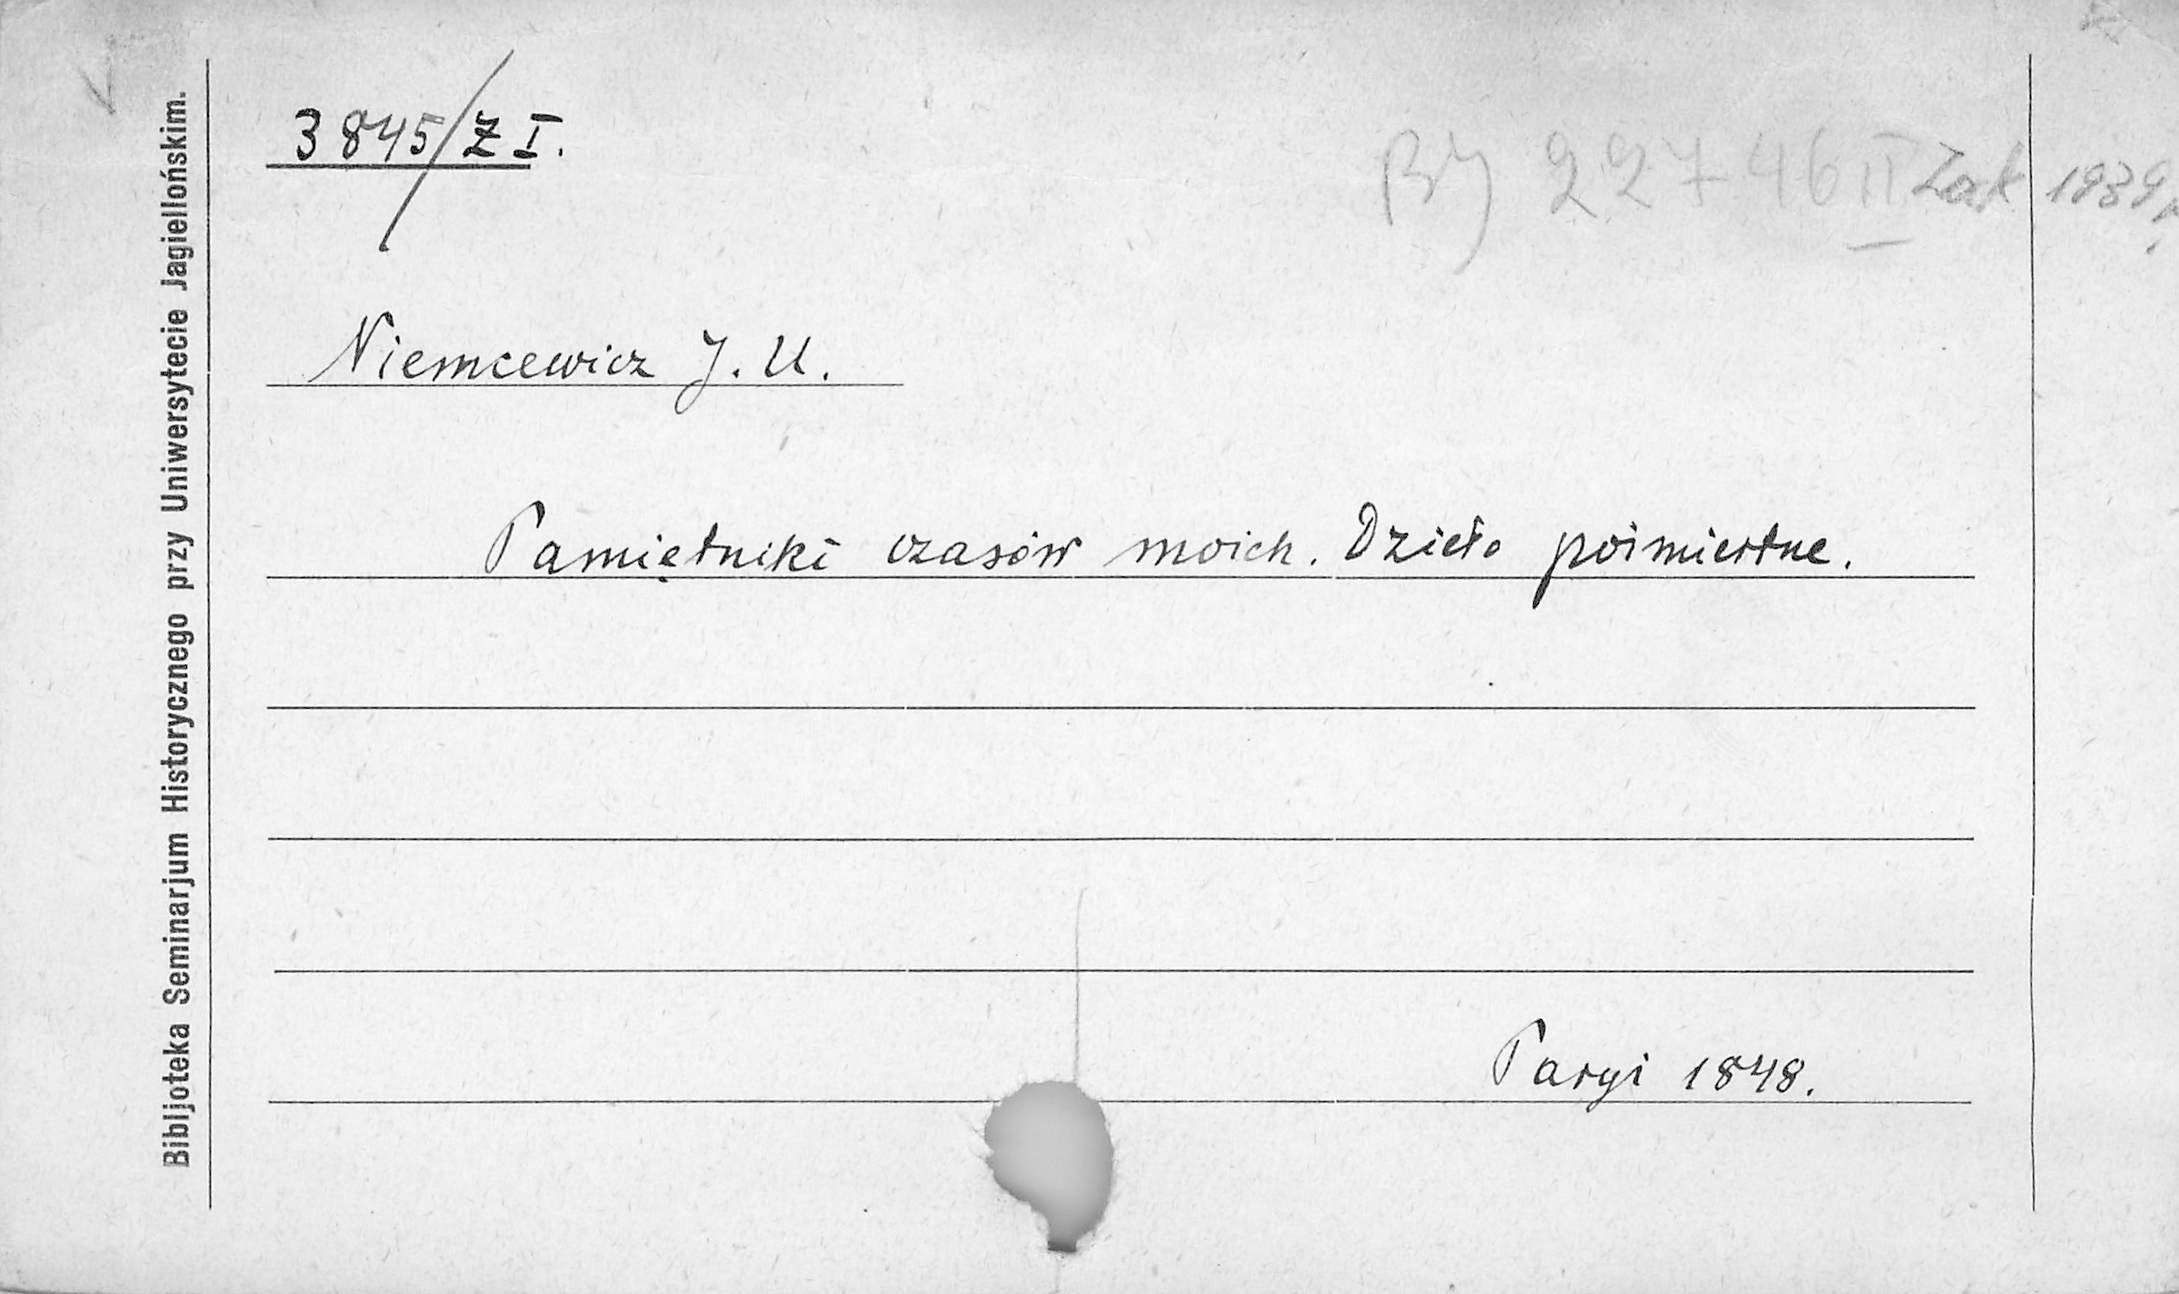 3845/Z I.
BJ 22746 II Zak 1939 r.
Niemcewicz J. U.
Pamiętniki czasów moich. Dzieło pośmiertne.
Paryż 1848.
Bibljoteka Seminarjum Historycznego przy Uniwersytecie Jagiellońskim.